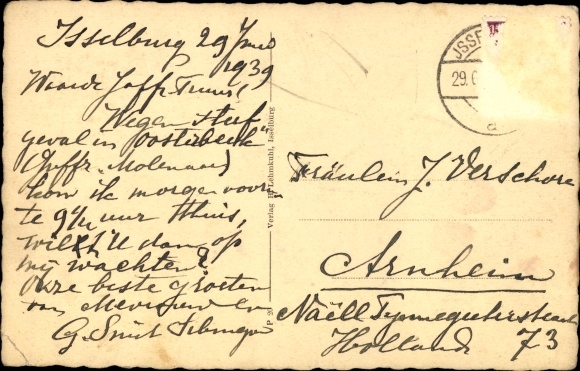 Isselburg 29 Juni
1939
Waarde Joffr. Truus!
Wegens sterf
geval in Oosterbeek"
(Juffr. Molenaar)
kom ik morgen voor
te 9½ uur thuis,
wilt U dan op
mij wachten?
Onze beste groeten
van Mevrouw en
G. Smit
Verlag H. Lehmkuhl, Isselburg
P 20
ISSE
29.6
a
Fräulein J. Verschore
Arnheim
Naëll
73
Holland